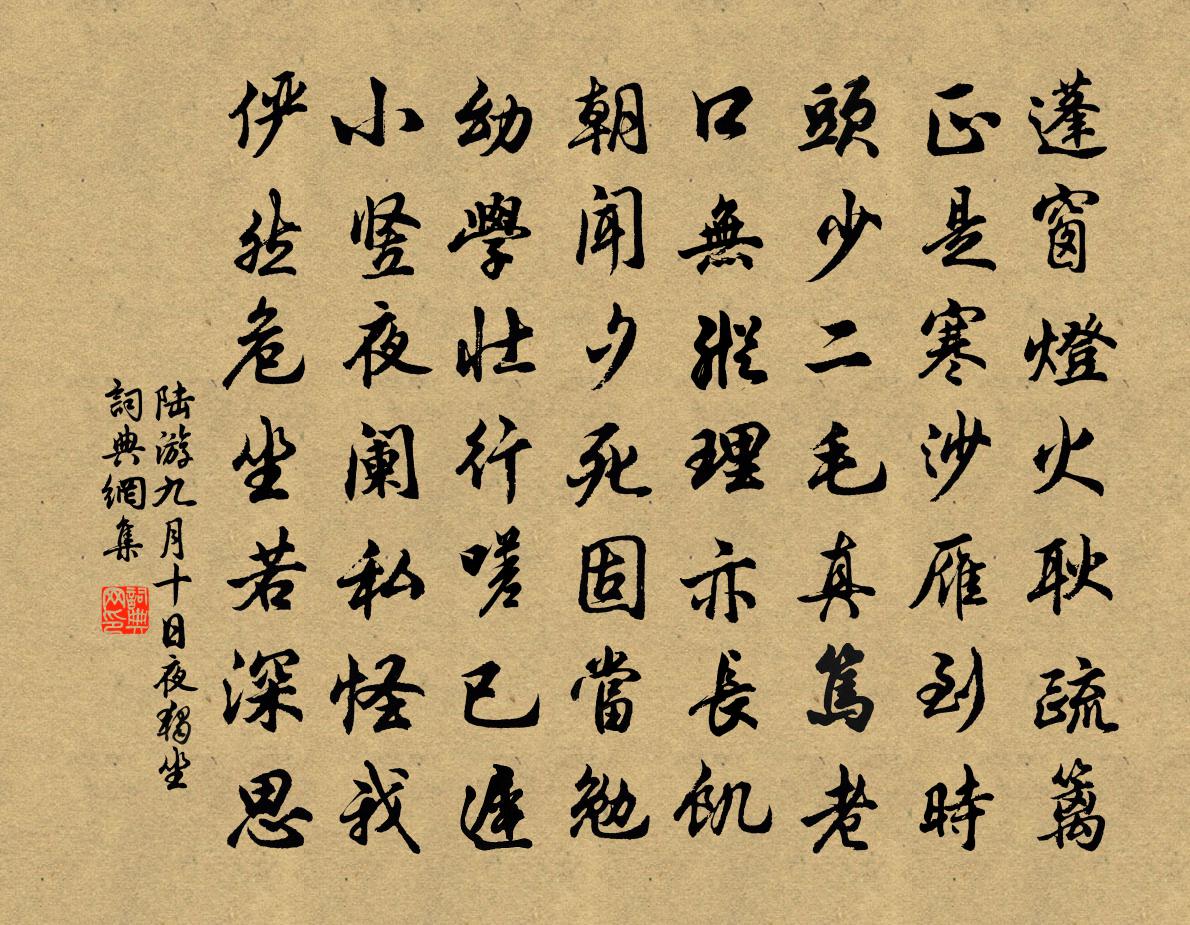 蓬窗燈火耿疏籬
正是寒沙雁到時
頭少二毛真篤老
口無縱理亦長飢
朝聞夕死固當勉
幼學壯行嗟已遲
小竖夜阑私怪我
俨然危坐若深思
陆游九月十日夜獨坐
詞典網集
詞典网印